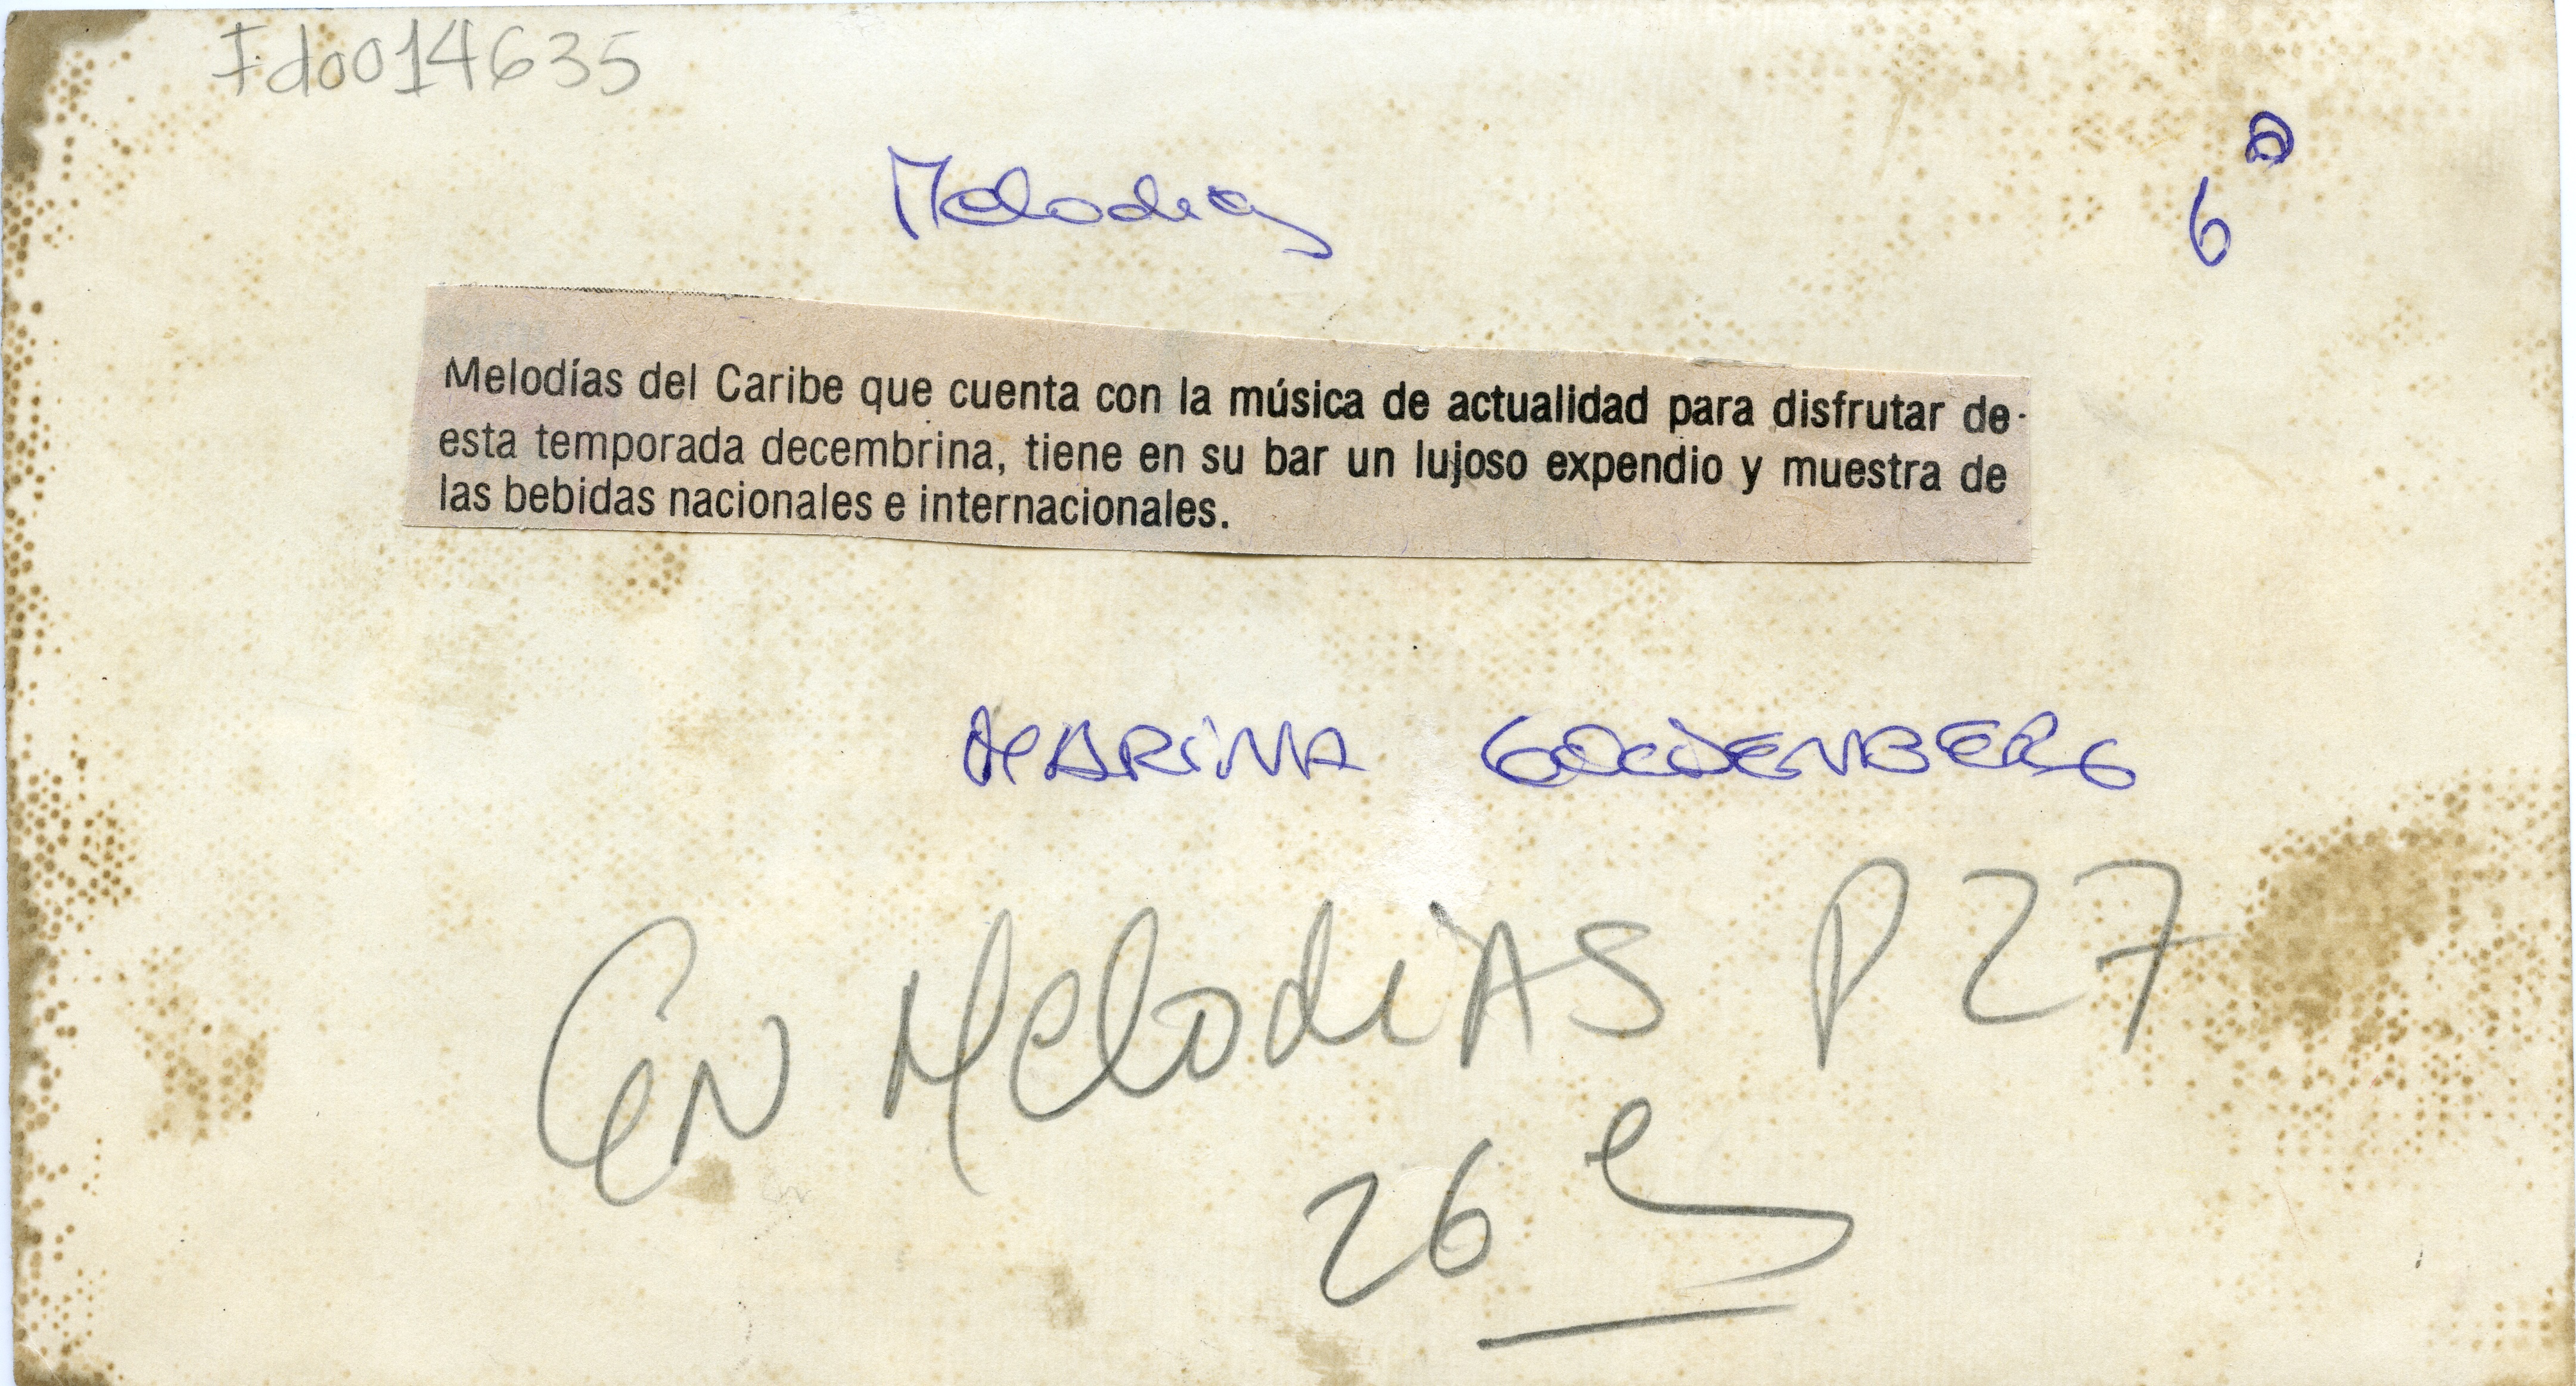 Fd0014635
Melodias
6a
Melodías del Caribe que cuenta con la música de actualidad para disfrutar de
esta temporada decembrina, tiene en su bar un lujoso expendio y muestra de
las bebidas nacionales e internacionales.
MARINA GOLDENBERG
EN MelodiAS P 27
26